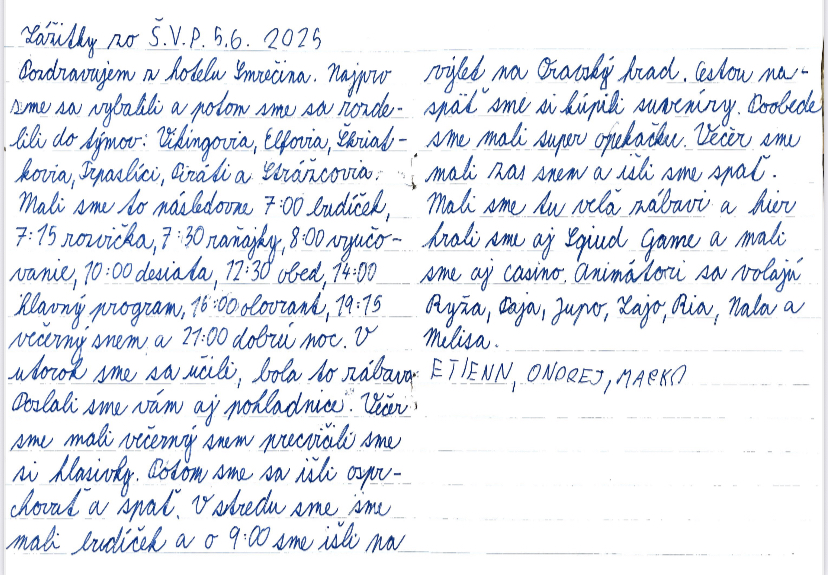 Zážitky zo Š.V.P. 5.6. 2025
Pozdravujem z hotelu Smrečina. Najprv
sme sa vybalili a potom sme sa rozde-
lili do týmov: Vikingovia, Elfovia, Škriat-
kovia, Trpaslíci, Piráti a Strážcovia.
Mali sme to následovne 7:00 budíček,
7:15 rozvička, 7:30 raňajky, 8:00 vyučo-
vanie, 10:00 desiata, 12:30 obed, 14:00
hlavný program, 16:00 olovrant, 19:15
večerný snem a 21:00 dobrú noc. V
utorok sme sa učili, bola to zábava.
Poslali sme vám aj pohladnice. Večer
sme mali večerný snem precvičili sme
si hlasivky. Potom sme sa išli ospr-
chovať a spať. V stredu sme sme
mali budíček a o 9:00 sme išli na
výlet na Oravský hrad. Cestou na-
späť sme si kúpili suveníry. Poobede
sme mali super opekačku. Večer sme
mali zas snem a išli sme spať.
Mali sme tu veľa zábavi a hier
hrali sme aj Sqiud Game a mali
sme aj casino. Animátori sa volajú
Ryža, Paja, Jupo, Zajo, Ria, Nala a
Melisa.
ETIENN, ONDREJ, MARKO